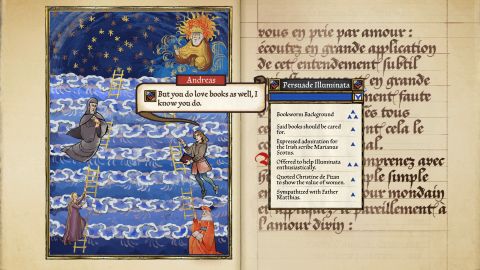 Andreas
But you do love books as well, I
know you do.
Persuade Illuminata
Bookworm Background
Said books should be cared
for.
Expressed admiration for
the Irish scribe Marianus
Scotus.
Offered to help Illuminata
enthusiastically.
Quoted Christine de Pizan
to show the value of women.
Sympathized with Father
Matthias.
vous en prie par amour :
écoutez en grande application
de cet entendement subtil
en grande
faute
tous
cela le
avec
simple
mondain
et appliquez le pareillement à
l'amour divin :